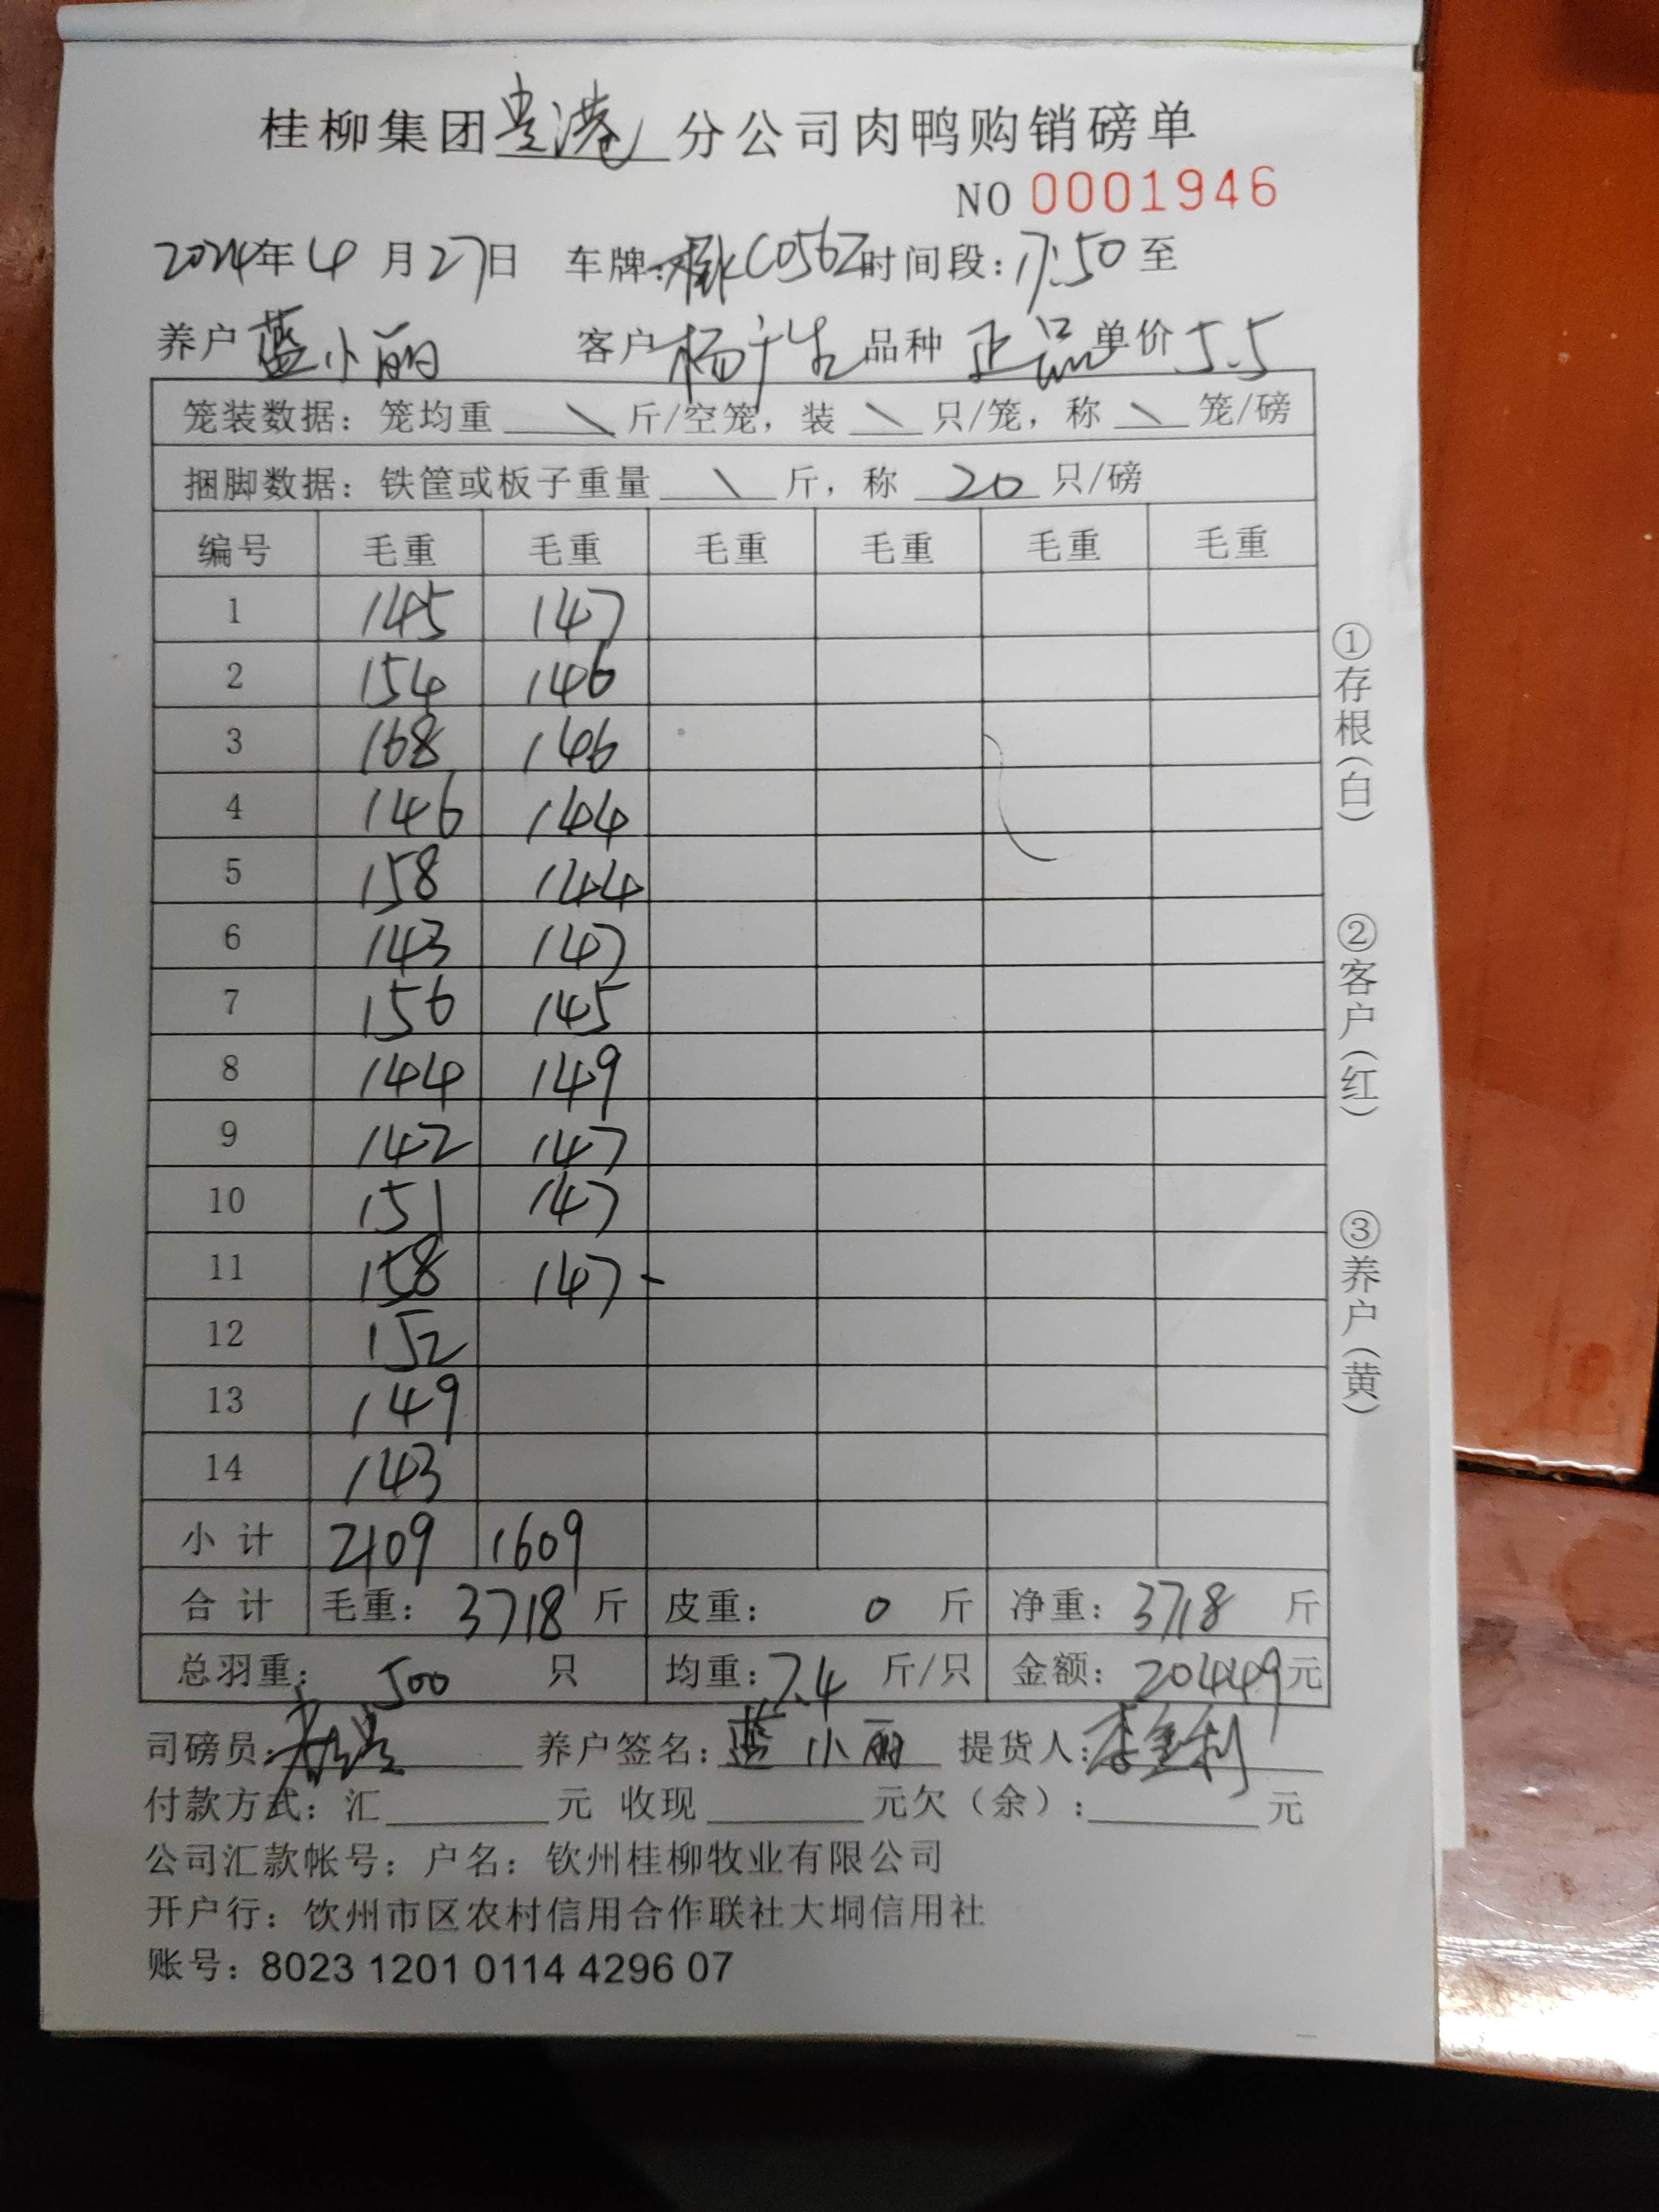 桂柳集团贵港分公司肉鸭购销磅单
NO 0001946
2024年4月27日 车牌: C056Z 时间段:17:50 至
养户 蓝小丽 客户 杨 生 品种 正品 单价 5.5
笼装数据: 笼均重 \ 斤/空笼, 装 \ 只/笼, 称 \ 笼/磅
捆脚数据: 铁筐或板子重量 \ 斤, 称 20 只/磅
编号 毛重 毛重 毛重 毛重 毛重 毛重
1 145 147
2 154 146
3 168 146
4 146 144
5 158 144
6 143 147
7 156 145
8 144 149
9 142 147
10 151 147
11 158 147
12 152
13 149
14 143
小计 2109 1609
合计 毛重: 3718 斤 皮重: 0 斤 净重: 3718 斤
总羽重: 500 只 均重: 7.4 斤/只 金额: 20449元
司磅员: 养户签名: 蓝小丽 提货人: 李金利
付款方式: 汇 元 收现 元欠(余): 元
公司汇款帐号; 户名: 钦州桂柳牧业有限公司
开户行: 饮州市区农村信用合作联社大垌信用社
账号: 8023 1201 0114 4296 07
①存根(白)
②客户(红)
③养户(黄)